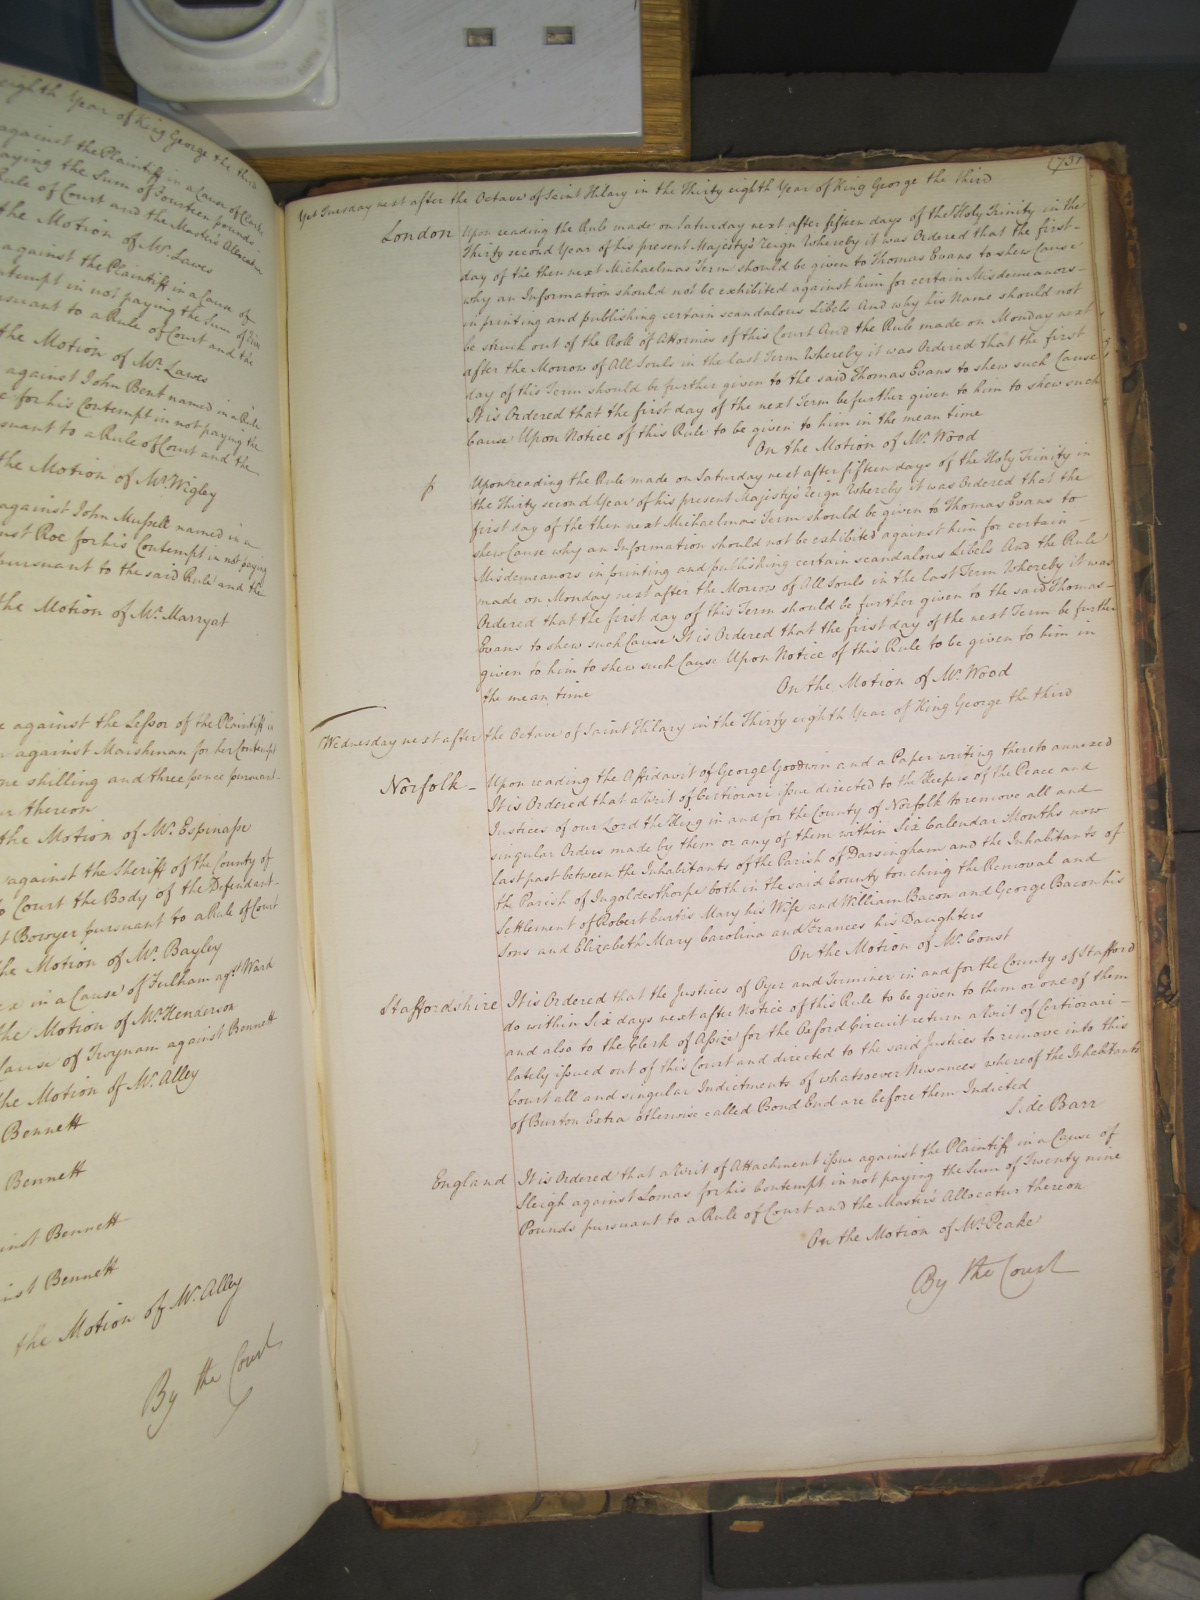 eighth Year of King George the third
against the Plaintiff in a Cause of
paying the Sum of Fourteen pounds
Rule of Court and the Master's Allocatur
the Motion of Mr. Lawes
against the Plaintiff in a Cause of
ntempt in not paying the Sum of
rsuant to a Rule of Court and the
the Motion of Mr. Lawes
against John Bent named in a Rule
e for his Contempt in not paying the
suant to a Rule of Court and the
the Motion of Mr Wigley
against John Mussell named in a
nst Roe for his Contempt in not paying
pursuant to the said Rule and the
the Motion of Mr. Marryat
e against the Lessor of the Plaintiff in
against Marshman for her Contempt
one shilling and three pence pursuant
thereon
the Motion of Mr. Espinasse
against the Sheriff of the County of
o Court the Body of the Defendant
t Bowyer pursuant to a Rule of Court
the Motion of Mr. Bayley
in a Cause of Fulham agst. Wark
the Motion of Mr. Henderson
Cause of Twynam against Bennett
the Motion of Mr. Alley
Bennett
Bennett
inst Bennett
inst Bennett
the Motion of Mr. Alley
By the Court
731
Yet Tuesday next after the Octave of Saint Hilary in the Thirty eighth Year of King George the third
London Upon reading the Rule made on Saturday next after fifteen days of the Holy Trinity in the
Thirty second Year of his present Majesty's Reign Whereby it was Ordered that the first
day of the then next Michaelmas Term should be given to Thomas Evans to shew Cause
why an Information should not be exhibited against him for certain Misdemeanors
in printing and publishing certain scandalous Libels And why his Name should not
be struck out of the Roll of Attornies of this Court And the Rule made on Monday next
after the Morrow of All Souls in the last Term Whereby it was Ordered that the first
day of this Term should be further given to the said Thomas Evans to shew such Cause
It is Ordered that the first day of the next Term be further given to him to shew such
Cause Upon Notice of this Rule to be given to him in the mean time
On the Motion of Mr. Wood
Upon reading the Rule made on Saturday next after fifteen days of the Holy Trinity in
the Thirty second Year of his present Majesty's Reign Whereby it was Ordered that the
first day of the then next Michaelmas Term should be given to Thomas Evans to
shew Cause why an Information should not be exhibited against him for certain
Misdemeanors in printing and publishing certain scandalous Libels And the Rule
made on Monday next after the Morrow of All Souls in the last Term Whereby it was
Ordered that the first day of this Term should be further given to the said Thomas
Evans to shew such Cause It is Ordered that the first day of the next Term be further
given to him to shew such Cause Upon Notice of this Rule to be given to him in
the mean time
On the Motion of Mr. Wood
Wednesday next after the Octave of Saint Hilary in the Thirty eighth Year of King George the third
Norfolk Upon reading the Affidavit of George Goodwin and a Paper writing thereto annexed
It is Ordered that a Writ of Certiorari issue directed to the Keepers of the Peace and
Justices of our Lord the King in and for the County of Norfolk to remove all and
singular Orders made by them or any of them within Six Calendar Months now
last past between the Inhabitants of the Parish of Darsingham and the Inhabitants of
the Parish of Ingoldesthorpe both in the said County touching the Removal and
Settlement of Robert Curtis Mary his Wife and William Bacon and George Bacon his
Sons and Elizabeth Mary Carolina and Frances his Daughters
On the Motion of Mr. Const
Staffordshire It is Ordered that the Justices of Oyer and Terminer in and for the County of Stafford
do within Six days next after Notice of this Rule to be given to them or one of them
and also to the Clerk of Assize for the Oxford Circuit return a Writ of Certiorari
lately issued out of this Court and directed to the said Justices to remove into this
Court all and singular Indictments of whatsoever Nusances whereof the Inhabitants
of Burton Extra otherwise called Bond End are before them Indicted
Side Barr
England It is Ordered that a Writ of Attachment issue against the Plaintiff in a Cause of
Sleigh against Lomas for his Contempt in not paying the Sum of Twenty nine
Pounds pursuant to a Rule of Court and the Master's Allocatur thereon
On the Motion of Mr. Peake
By the Court